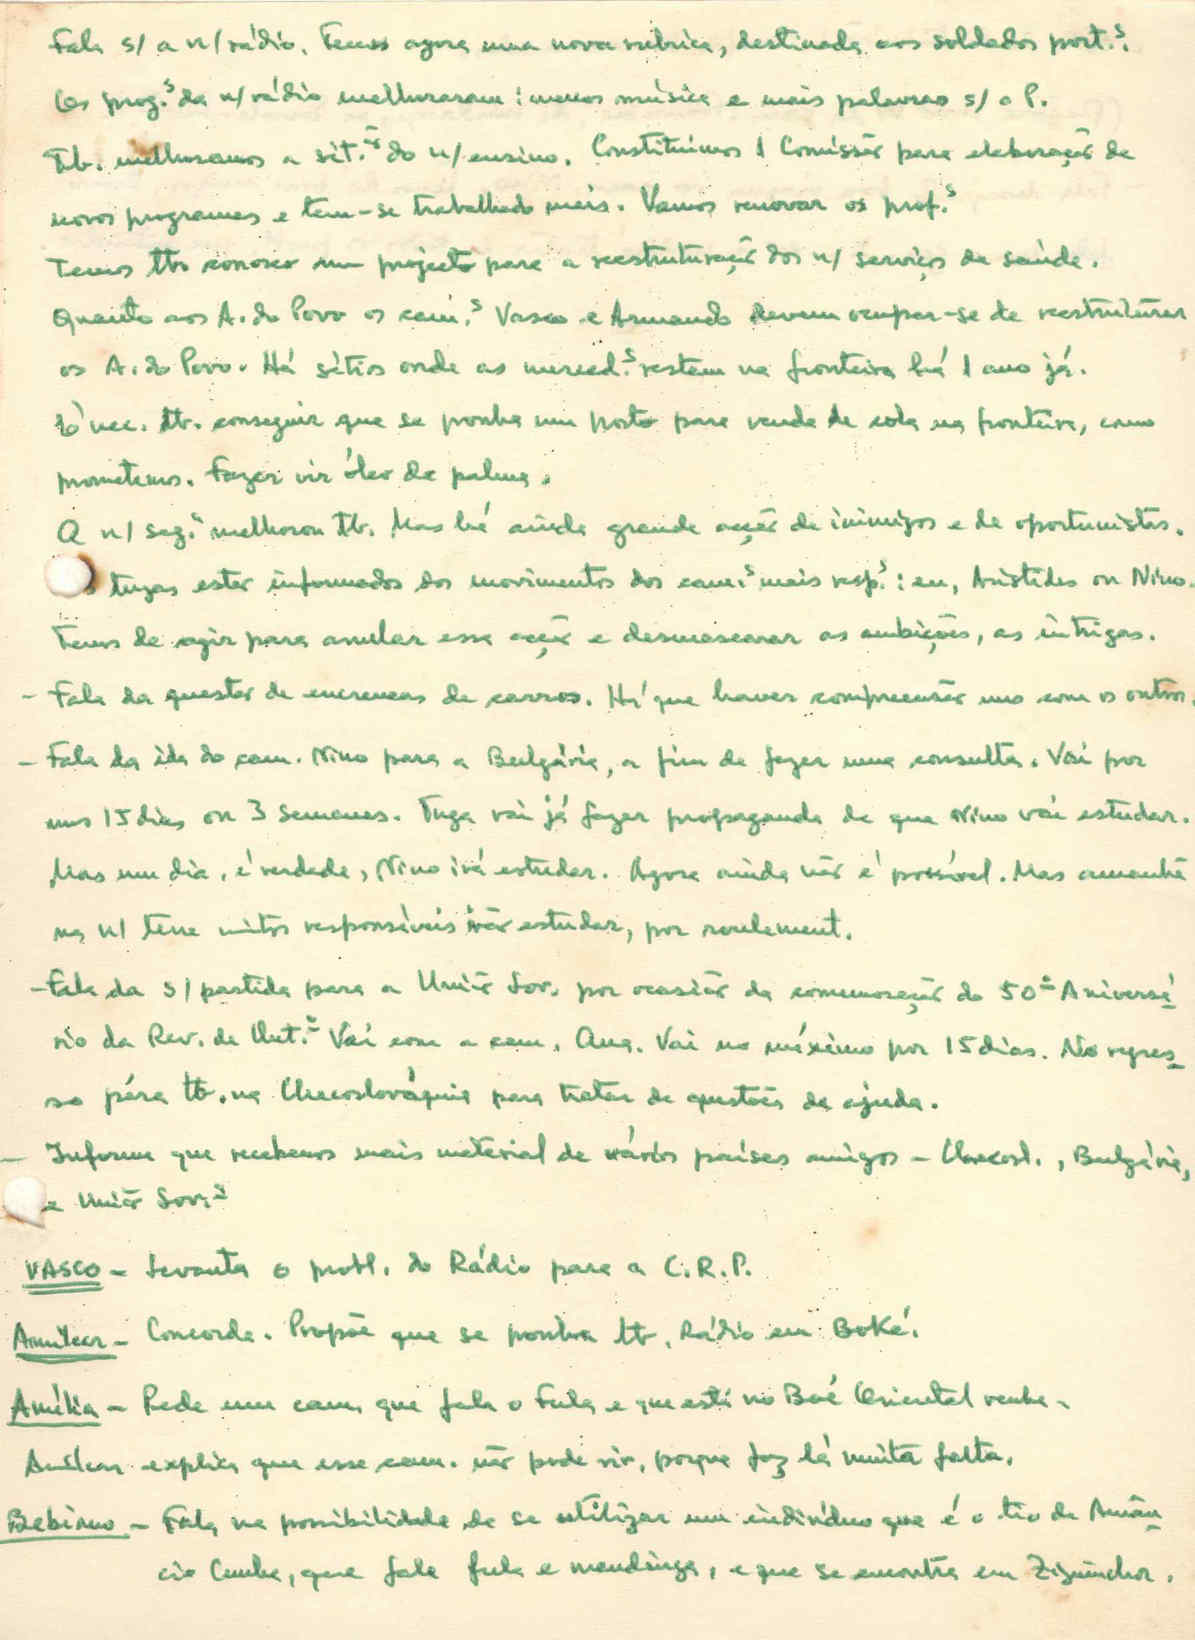 Fala s/ a n/ rádio. Temos agora uma nova rúbrica, destinada aos soldados port.s.
Os prog.s da n/ rádio melhoraram: menos música e mais palavras s/ o P.
Tb. melhoramos a sit.ão do n/ ensino. Constituimos 1 Comissão para elaboração de
novos programas e tem-se trabalhado mais. Vamos renovar os prof.s
Temos tb. conosco um projecto para a reestruturação dos n/ serviços de saúde.
Quanto aos A. do Povo os cam.s Vasco e Armando devem ocupar-se de reestruturar
os A. do Povo. Há sítios onde as mercad.s restam na fronteira há 1 ano já.
É nec. tb. conseguir que se ponha um posto para venda de cola na fronteira, como
prometemos. Fazer vir óleo de palma.
A n/ seg.a melhorou tb. Mas há ainda grande acção de inimigos e de oportunistas.
tugas estar informados dos movimentos dos cam.s mais resp.s: eu, Aristides ou Nino.
Temos de agir para anular essa acção e desmascarar as ambições, as intrigas.
- Fala da questão de encrencas de carros. Há que haver compreensão uns com os outros.
- Fala da ida do cam. Nino para a Bulgária, a fim de fazer uma consulta. Vai por
uns 15 dias ou 3 semanas. Tuga vai já fazer propaganda de que Nino vai estudar.
Mas um dia, é verdade, Nino irá estudar. Agora ainda não é possível. Mas amanhã
na n/ terra muitos responsáveis irão estudar, por roulement.
- Fala da s/ partida para a União Sov. por ocasião da comemoração do 50º Aniversá-
rio da Rev. de Out.o Vai com a cam. Ana. Vai no máximo por 15 dias. No regres-
so pára tb. na Checoslováquia para tratar de questões de ajuda.
- Informa que recebemos mais material de vários países amigos - Checosl., Bulgária,
e União Sov.a
VASCO - Levanta o probl. do Rádio para a C.R.P.
Amilcar - Concorda. Propõe que se ponha tb. Rádio em Boké.
Amélia - Pede um cam. que fala o Fula e que está no Boé Oriental venha.
Amilcar explica que esse cam. não pode vir, porque faz lá muita falta.
Bebiano - Fala na possibilidade de se utilizar um indivíduo que é o tio de Amân-
cio Cunha, que fala fula e mandinga, e que se encontra em Ziguinchor.